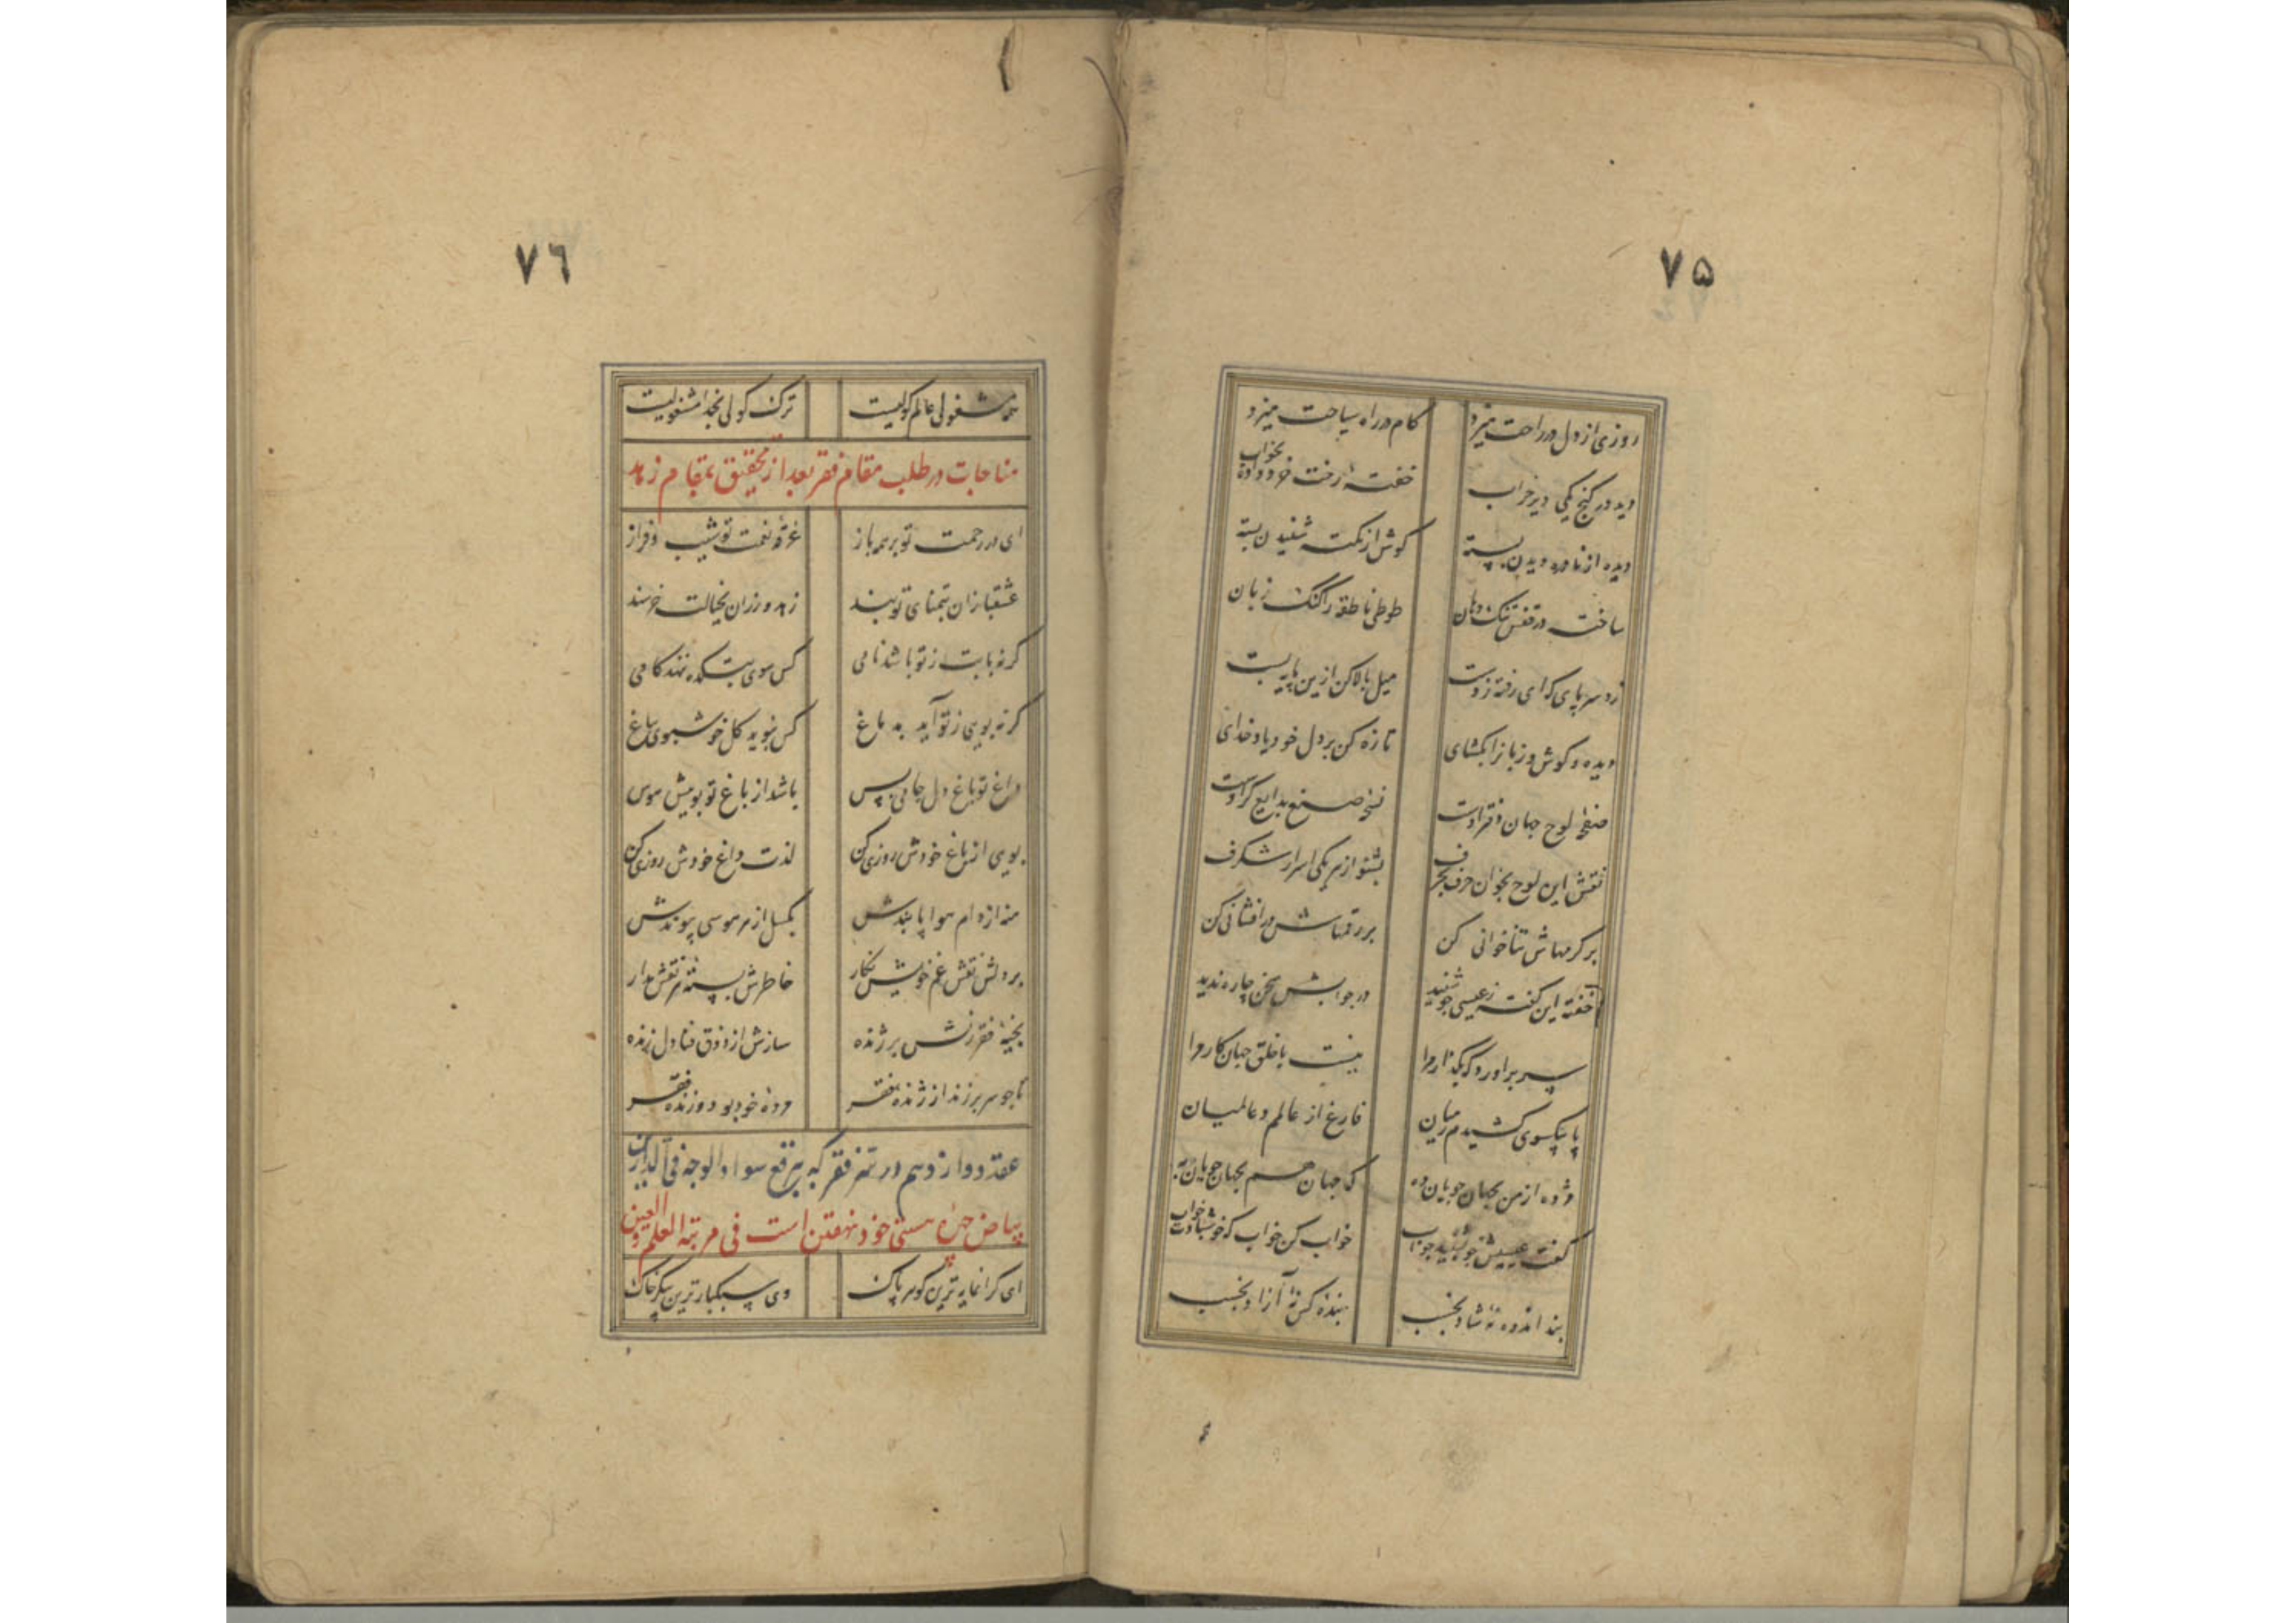 ٧۵
روزی از دل در راحت میزد کام در راه سیاحت میزد
دید در کنج یکی دیر خراب خفته رخت خرد داده بخواب
دیده از نادره دیدن بسته کوش از نکته شنیدن بسته
ساخته در قفس تنک دهان طوطی ناطقه را کنک زبان
زد سر پای که ای رفته ز دست میل بالا کن ازین پایه پست
دیده و کوش و زبانرا بکشای تازه کن بر دل خود یاد خدای
صفحه لوح جهان دفتر اوست نسخه صنع بدایع کر اوست
نقش این لوح بخوان حرف بحرف بشنو از هر یکی اسرار شکرف
بر کرمهاش ثناخوانی کن بر رقمهاش درافشانی کن
خفته این نکته ز عیسی چو شنید در جوابش سخن چاره ندید
سر برآورد که بگذار مرا نیست با خلق جهان کار مرا
پا بیکسوی کشیدم ز میان فارغ از عالم و عالمیان
مژده از من بجهان جویان ده که جهان هم بجهان جویان به
کفت عیسیش چو بشنید جواب خواب کن خواب که خوش بادت خواب
بند اندوه نه شاد بخسب بنده کس نه آزاد بخسب
٧٦
همه مشغولی عالم کولیست ترک کولی بخدا مشغولیست
مناجات در طلب مقام فقر بعد از تحقیق بمقام زهد
ای در رحمت تو بر همه باز غرقه نعمت تو شیب و فراز
عشقبازان بتمنای تو بند زهد ورزان بخیالت خرسند
کر نه با بت ز تو باشد نامی کس سوی بتکده ننهد کامی
کر نه بویی ز تو آید به باغ کس نبوید کل خوشبوی بباغ
داغ تو باغ دل جامی بس باشد از باغ تو بوییش هوس
بویی از باغ خودش روزی کن لذت داغ خودش روزی کن
منه از دام هوا پا بندش بکسل از هر هوسی پیوندش
بر دلش نقش غم خویش نکار خاطرش بسته هر نقش مدار
بخیه فقر زنش بر ژنده سازش از ذوق فنا دل زنده
تا چو سر برزند از ژنده فقر مرده خود بود و زنده فقر
عقد دوازدهم در سر فقر که ببرقع سواد الوجه فی الدارین
بیاض چهره هستی خود نهفتن است فی مرتبة العلم والعین
ای کرانمایه ترین کوهر پاک وی سبکبارترین پیکر خاک